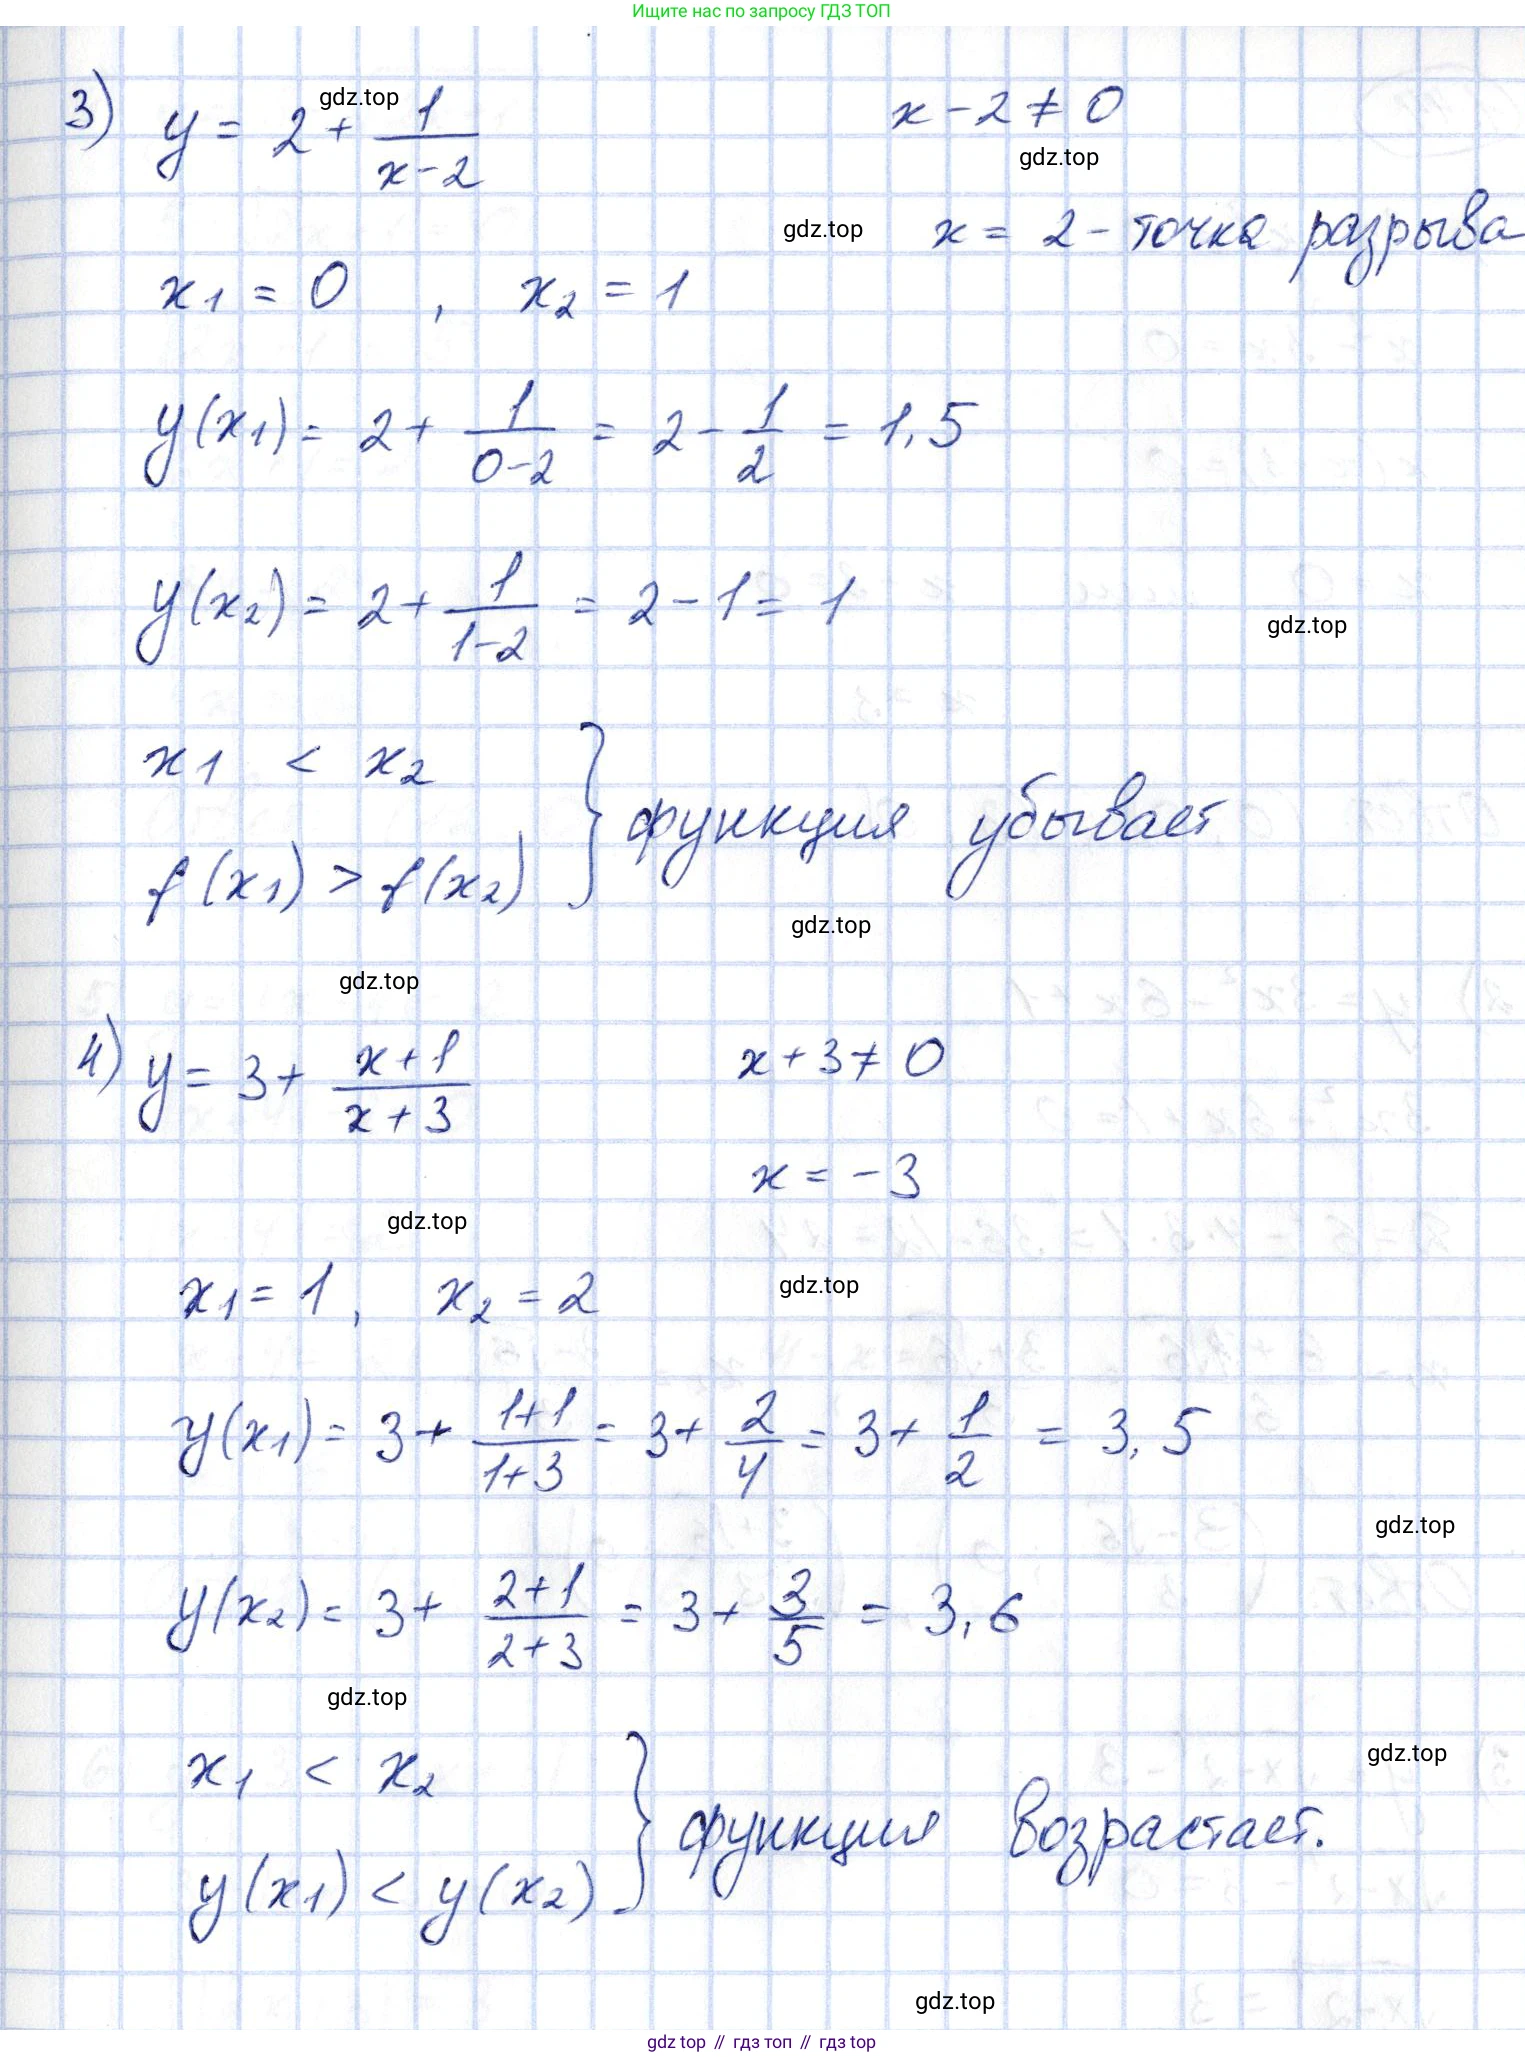 Ищите нас по запросу ГДЗ ТОП
3) y = 2 + 1/(x-2)
x - 2 ≠ 0
gdz.top
gdz.top
gdz.top
x = 2 - точка разрыва
x₁ = 0 , x₂ = 1
y(x₁) = 2 + 1/(0-2) = 2 - 1/2 = 1,5
y(x₂) = 2 + 1/(1-2) = 2 - 1 = 1
gdz.top
x₁ < x₂
f(x₁) > f(x₂) } функция убывает
gdz.top
gdz.top
4) y = 3 + (x+1)/(x+3)
x + 3 ≠ 0
x = -3
gdz.top
x₁ = 1, x₂ = 2
gdz.top
y(x₁) = 3 + (1+1)/(1+3) = 3 + 2/4 = 3 + 1/2 = 3,5
gdz.top
y(x₂) = 3 + (2+1)/(2+3) = 3 + 3/5 = 3,6
gdz.top
gdz.top
x₁ < x₂
y(x₁) < y(x₂) } функция возрастает.
gdz.top
gdz top // гдз топ // gdz top